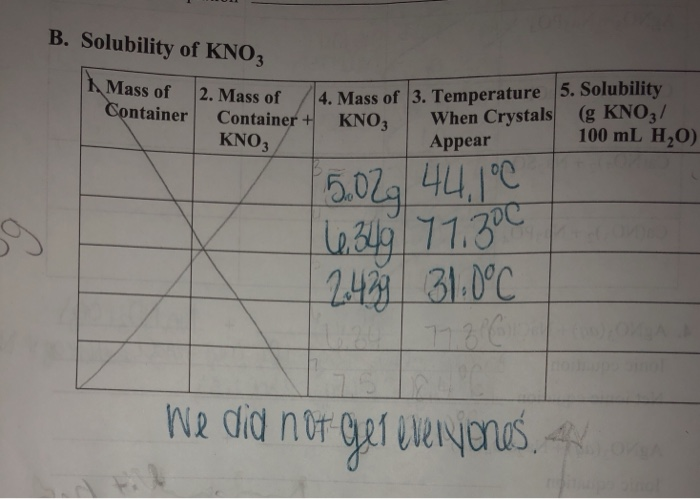 B. Solubility of KNO3
1. Mass of Container
2. Mass of Container + KNO3
4. Mass of KNO3
3. Temperature When Crystals Appear
5. Solubility (g KNO3/ 100 mL H2O)
5.02g 44.1°C
6.34g 77.3°C
2.43g 31.0°C
6.34 77.3°C
7.5
We did not get everyones.